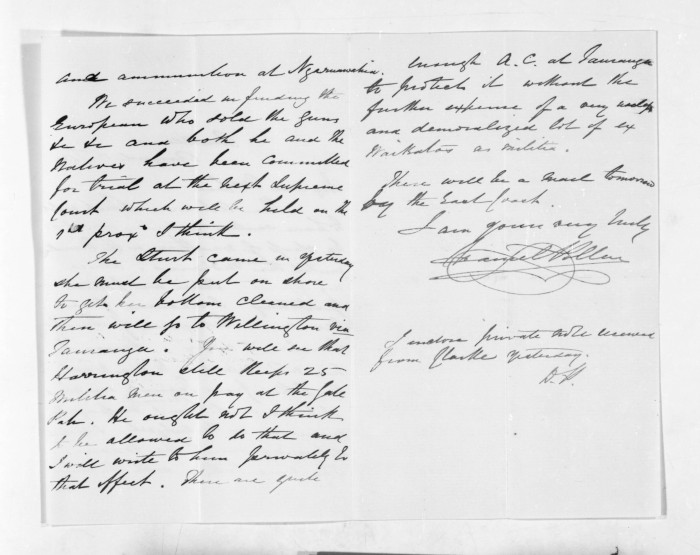 and ammunition at Ngaruawahia.
We succeeded in finding the
European who sold the guns
&c &c and both he and the
Natives have been committed
for trial at the next Supreme
Court which will be held on the
1st prox° I think.
The Sturt came in yesterday
she must be put on shore
to get her bottom cleaned and
then will go to Wellington via
Tauranga. You will see that
Harrington still keeps 25
Militia men on pay at the Gate
Pah. He ought not I think
to be allowed to do that and
I will write to him privately to
that effect. There are quite
enough A.C. at Tauranga
to protect it without the
further expense of a very useless
and demoralized lot of ex
Waikatos as militia.
There will be a mail tomorrow
by the East Coast.
I am yours very truly
Daniel Pollen
I enclose private note received
from Clarke yesterday.
D.P.